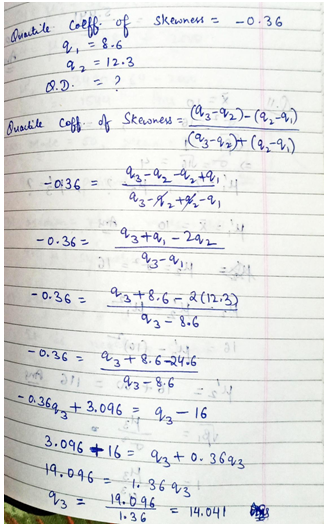 Quartile Coeff. of Skewness = -0.36
q₁ = 8.6
q₂ = 12.3
Q.D. = ?
Quartile Coff. of Skewness = (q₃-q₂)-(q₂-q₁) / (q₃-q₂)+(q₂-q₁)
-0.36 = q₃-q₂-q₂+q₁ / q₃-q₂+q₂-q₁
-0.36 = q₃+q₁-2q₂ / q₃-q₁
-0.36 = q₃+8.6-2(12.3) / q₃-8.6
-0.36 = q₃+8.6-24.6 / q₃-8.6
-0.36q₃+3.096 = q₃-16
3.096+16 = q₃+0.36q₃
19.096 = 1.36q₃
q₃ = 19.096 / 1.36 = 14.041